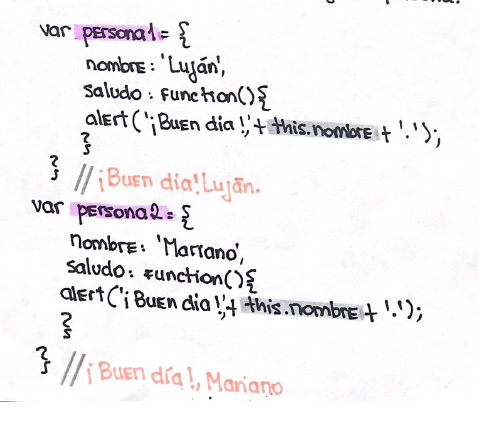 var persona1 = {
nombre: 'Luján',
saludo: function(){
alert('¡Buen día!,'+ this.nombre + '.');
}
} //¡Buen día! Luján.
var persona2 = {
nombre: 'Mariano',
saludo: function(){
alert('¡Buen día!,'+ this.nombre + '.');
}
} //¡Buen día!, Mariano